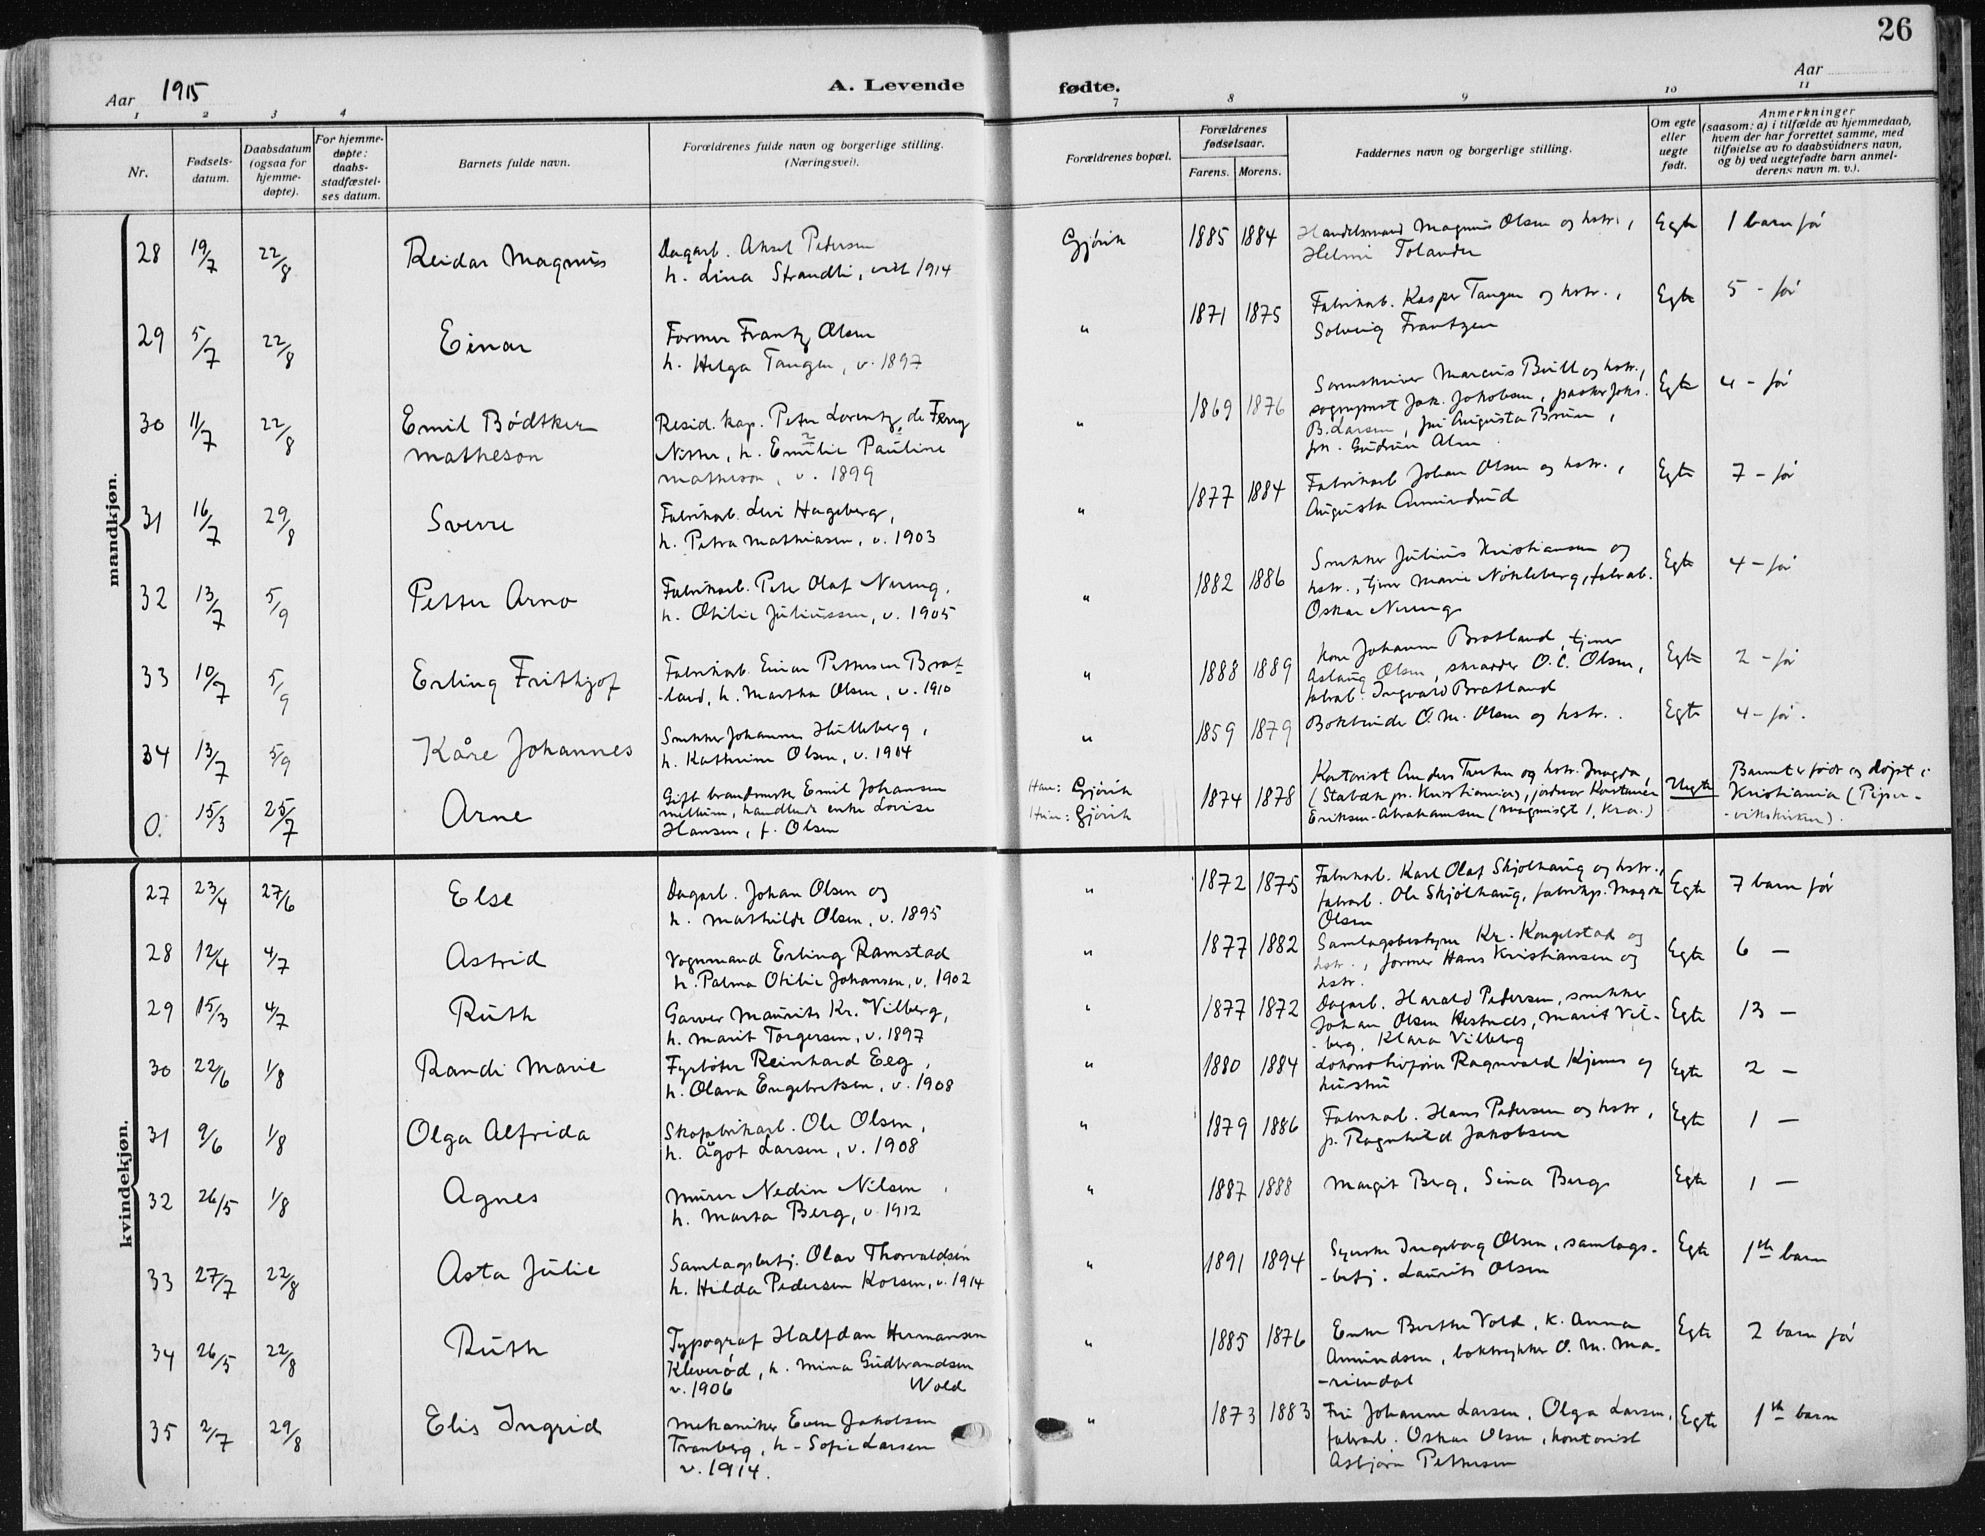 26
Aar 1915
A. Levende fødte.
Aar
1 2 3 4 7 8 9 10 11
Nr.
Fødsels-
datum.
Daabsdatum
(ogsaa for
hjemme-
døpte).
For hjemme-
døpte:
daabs-
stadfæstel-
ses datum.
Barnets fulde navn.
Forældrenes fulde navn og borgerlige stilling.
(Næringsvei).
Forældrenes bopæl.
Forældrenes
fødselsaar.
Farens. Morens.
Faddernes navn og borgerlige stilling.
Om egte
eller
uegte
født.
Anmerkninger
(saasom: a) i tilfælde av hjemmedaab,
hvem der har forrettet samme, med
tilføielse av to daabsvidners navn,
og b) ved uegtefødte barn anmel-
derens navn m. v.).
mandkjøn.
28 19/7 22/8 Reidar Magnus
Dagarb. Aksel Petersen
h. Lina Strandli, viet 1914
Gjøvik 1885 1884
Handelsmand Magnus Olsen og hstr.,
Helmi Tolander
Egte 1 barn før
29 5/7 22/8 Einar
Former Frantz Olsen
h. Helga Tangen, v. 1897
" 1871 1875
Fabrikarb. Kasper Tangen og hstr.,
Solveig Frantzen
Egte 5 - før
30 11/7 22/8 Emil Bødtker
Matheson
Resid. kap. Peter Lorentz de Ferry
Nitter, h. Emilie Pauline
Matheson, v. 1899
" 1869 1876
Sorenskriver Marcus Bull og hstr.,
sogneprest Jak. Jakobsen, Johs.
B. Larsen, fru Augusta Bruun,
frk. Gudrun Alm
Egte 4 - før
31 16/7 29/8 Sverre
Fabrikarb. Levi Hageberg,
h. Petra Mathiasen, v. 1903
" 1877 1884
Fabrikarb Johan Olsen og hstr.,
Augusta Amundsrud
Egte 7 - før
32 13/7 5/9 Petter Arno
Fabrikarb. Peter Olaf Nereng,
h. Otilie Juliussen, v. 1905
" 1882 1886
Snekker Julius Kristiansen og
hstr., tjener Marie Nøkleberg, fabrab.
Oskar Nereng
Egte 4 - før
33 10/7 5/9 Erling Frithjof
Fabrikarb. Einar Pettersen Brat-
-land, h. Martha Olsen, v. 1910
" 1888 1889
Kone Johanne Bratland, tjener
Aslaug Olsen, skrædder O. C. Olsen,
fabrab. Ingvald Bratland
Egte 2 - før
34 13/7 5/9 Kåre Johannes
Snekker Johannes Hilleberg,
h. Kathrine Olsen, v. 1904
" 1859 1879
Bokbinder O. M. Olsen og hstr.
Egte 4 - før.
0. 15/3 25/7 Arne
Gift brandmester Emil Johansen
Mellum, handlende enke Lovise
Hansen, f. Olsen
Han: Gjøvik
Hun: Gjøvik
1874 1878
Kontorist Anders og hstr. Magda,
(Stabæk pr. Kristiania), jordmor
Eriksen-Abrahamsen (Magnusgt 1, Kr.a.)
Uegte
Barnet er født og døpt i
Kristiania (Piper-
-vikskirken).
kvindekjøn.
27 23/4 27/6 Else
Dagarb. Johan Olsen og
h. Mathilde Olsen, v. 1895
" 1872 1875
Fabrikarb. Karl Olaf Skjølhaug og hstr.,
fabrarb. Ole Skjølhaug, fabrikp. Magda
Olsen
Egte 7 barn før
28 12/4 4/7 Astrid
Vognmand Erling Ramstad
h. Palma Otilie Johansen, v. 1902
" 1877 1882
Samlagsbestyrer Kr. Kongelstad og
hstr., former Hans Kristiansen og
hstr.
Egte 6 -
29 15/3 4/7 Ruth
Garver Maurits Kr. Vilberg,
h. Marit Torgersen, v. 1897
" 1877 1872
Dagarb. Harald Pedersen, snekker
Johan Olsen Hestnes, Marit Vil-
-berg, Klara Vilberg
Egte 13 -
30 22/6 1/8 Randi Marie
Fyrbøter Reinhard Eeg,
h. Olava Engebretsen, v. 1908
" 1880 1884
Lokomotivfører Ragnvald Kjernes og
hustru
Egte 2 -
31 9/6 1/8 Olga Alfrida
Skofabrikarb. Ole Olsen,
h. Ågot Larsen, v. 1908
" 1879 1886
Fabrikarb. Hans Pedersen og hstr,
p. Ragnhild Jakobsen
Egte 1 -
32 26/5 1/8 Agnes
Murer Nedin Nilsen,
h. Marta Berg, v. 1912
" 1887 1888
Margit Berg, Sina Berg
Egte 1 -
33 27/7 22/8 Asta Julie
Samlagsbetj. Olav Thorvaldsen
h. Hilda Pedersen Kolsen, v. 1914
" 1891 1894
Syerske Ingeborg Olsen, samlags-
-betj. Laurits Olsen
Egte 1ste barn
34 26/5 22/8 Ruth
Typograf Halfdan Hermansen
Kleverød, h. Mina Gudbrandsen
v. 1906 Wold
" 1885 1876
Enke Berthe Vold, k. Anna
Amundsen, boktrykker O. M. Ma-
-riendal
Egte 2 barn før
35 2/7 29/8 Elis Ingrid
Mekaniker Even Jakobsen
Tranberg, h - Sofie Larsen
v. 1914.
" 1873 1883
Fru Johanne Larsen, Olga Larsen,
fabrarb. Oskar Olsen, kontorist
Asbjørn Pettersen
Egte 1ste barn